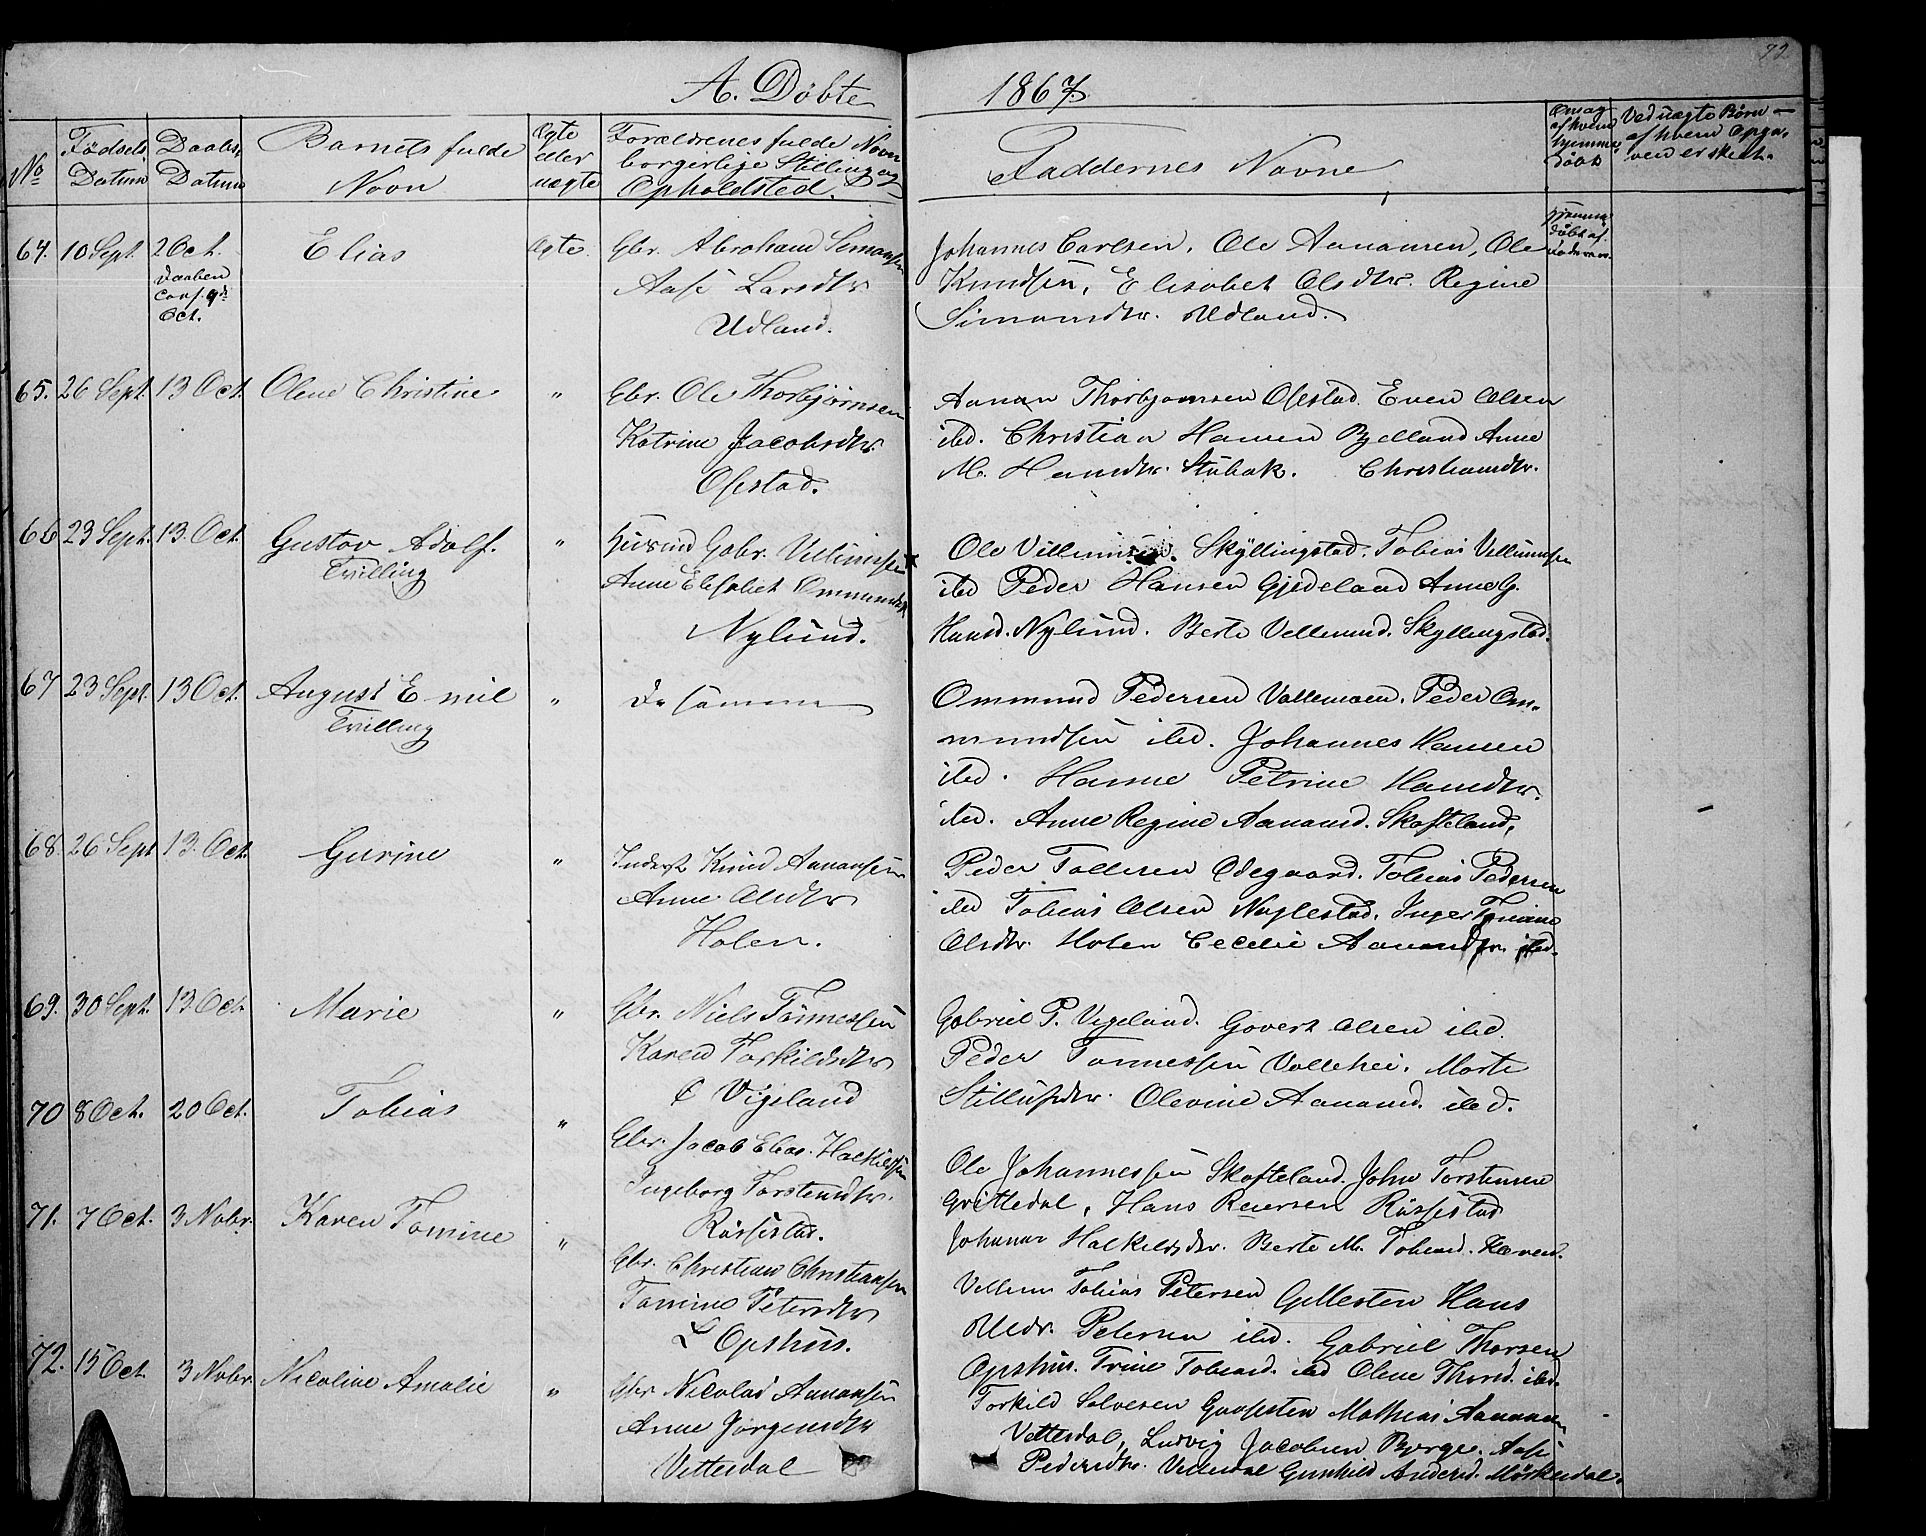 72
A. Døbte 1867.
No
Fødsels Datum
Daabs Datum
Barnets fulde Navn
Ægte eller uægte
Forældrenes fulde Navn borgerlige Stilling og Opholdsted.
Faddernes Navne
Ved uægte Børn af hvem Opgaven er skeet.
64. 10 Sept. 2 Oct. Elias Ægte Gbr. Abraham Simonsen
Daaben conf. 9de Oct.
Aase Larsdtr
Udland.
Johannes Carlsen, Ole Aanansen, Ole
Knudsen, Elisabet Olsdtr. Regine
Simonsdtr. Udland.
hjemmedøbt af
65. 26 Sept. 13 Oct. Olene Christine " Gbr. Ole Thorbjørnsen
Katrine Jacobsdtr.
Osestad.
Aanan Thorbjørnsen Osestad. Even Olsen
ibd. Christian Hansen Bjelland Anne
M. Hansdtr. Stubak. Christiansdtr.
66 23 Sept. 13. Oct. Gustav Adolf. " Husmd Gabr. Villumsen
Tvilling
Anne Elisabet Ommundsd
Nylund.
Ole Villumsen. Skyllingstad. Tobias Vellumsen
ibd Peder Hansen Gjedeland Anne G.
Hansd. Nylund. Berte Vellumsd. Skyllingstad.
67 23 Sept. 13 Oct. August Emil " De samme
Tvilling
Ommund Pedersen Vallemoen. Peder Om-
mundsen ibd. Johannes Hansen
ibd. Hanne Petrine Hansdtr.
ibd. Anne Regine Aanansd. Skofteland.
68. 26 Sept 13. Oct. Gurine " Inderst Knud Aanansen
Anne Olsdtr
Holen.
Peder Tollesen Ødegaard. Tobias Pedersen
ibd Tobias Olsen Nøglestad. Inger
Olsdtr. Holen Cecelie Aanansdtr. ibd.
69. 30 Sept. 13 Oct. Marie " Gbr. Niels Tønnessen
Karen Torkildsdtr
Vigeland
Gabriel P. Vigeland. Govert Olsen ibd.
Peder Tønnessen Vallehei. Marte
Olevine Aanansd. ibd.
70 8 Oct. 20 Oct. Tobias " Gbr. Jacob Elias. Halkildsen
Ingeborg Torstensdtr.
Røssestad.
Ole Johannessen Skofteland. John Torstensen
Grittedal, Hans Reiersen Røssestad
Johanne Halkildsdtr. Berte M. Tobiasd.
71. 7 Oct. 3 Nobr. Karen Tomine " Gbr. Christian Christiansen
Tomine Petersdtr
L Opshus.
Vellum Tobias Petersen Gillesten Hans
Petersen ibd. Gabriel Thorsen
Opshus. Trine Tobiasd. ibd Olene Thorsd. ibd.
72. 15 Oct. 3 Nobr. Nicoline Amalie " Gbr Nicolai Aanansen
Anne Jørgensdtr
Vittersdal
Torkild Salvesen Mathias Aanansen
Vettesdal, Ludvig Jacobsen Berge. Aase
Pedersdtr. Gunhild Andersd.